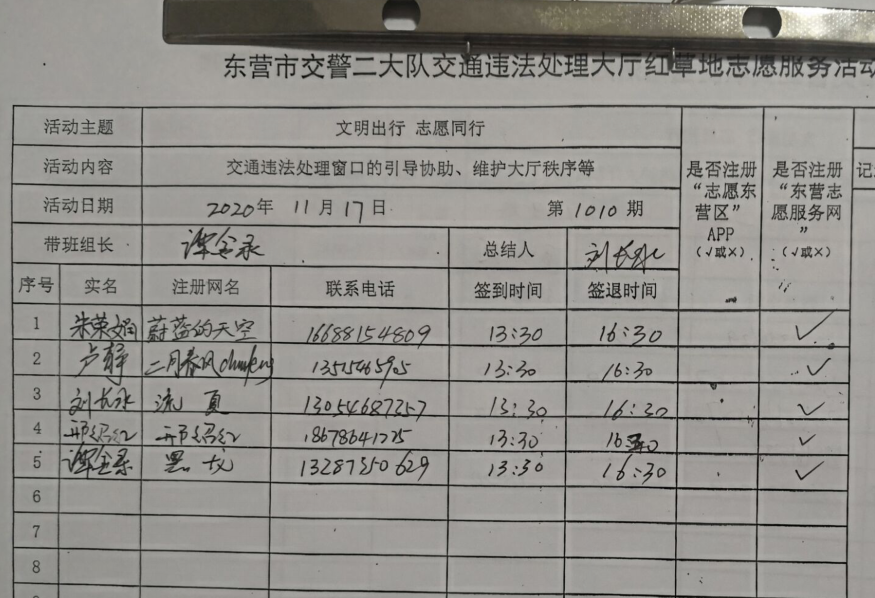 东营市交警二大队交通违法处理大厅红草地志愿服务活动
活动主题 文明出行 志愿同行
活动内容 交通违法处理窗口的引导协助、维护大厅秩序等
活动日期 2020年 11月17日 第1010期
是否注册“志愿东营区”APP(√或×)
是否注册“东营志愿服务网”(√或×)
带班组长 谭金录 总结人 刘长水
序号 实名 注册网名 联系电话 签到时间 签退时间
1 朱荣娟 蔚蓝的天空 16688154809 13:30 16:30 √
2 卢静 二月春风 13:30 16:30 √
3 刘长水 流夏 13054687357 13:30 16:30 √
4 邢绍红 邢绍红 18678641225 13:30 √
5 谭金录 黑龙 13287350629 13:30 16:30 √
6
7
8